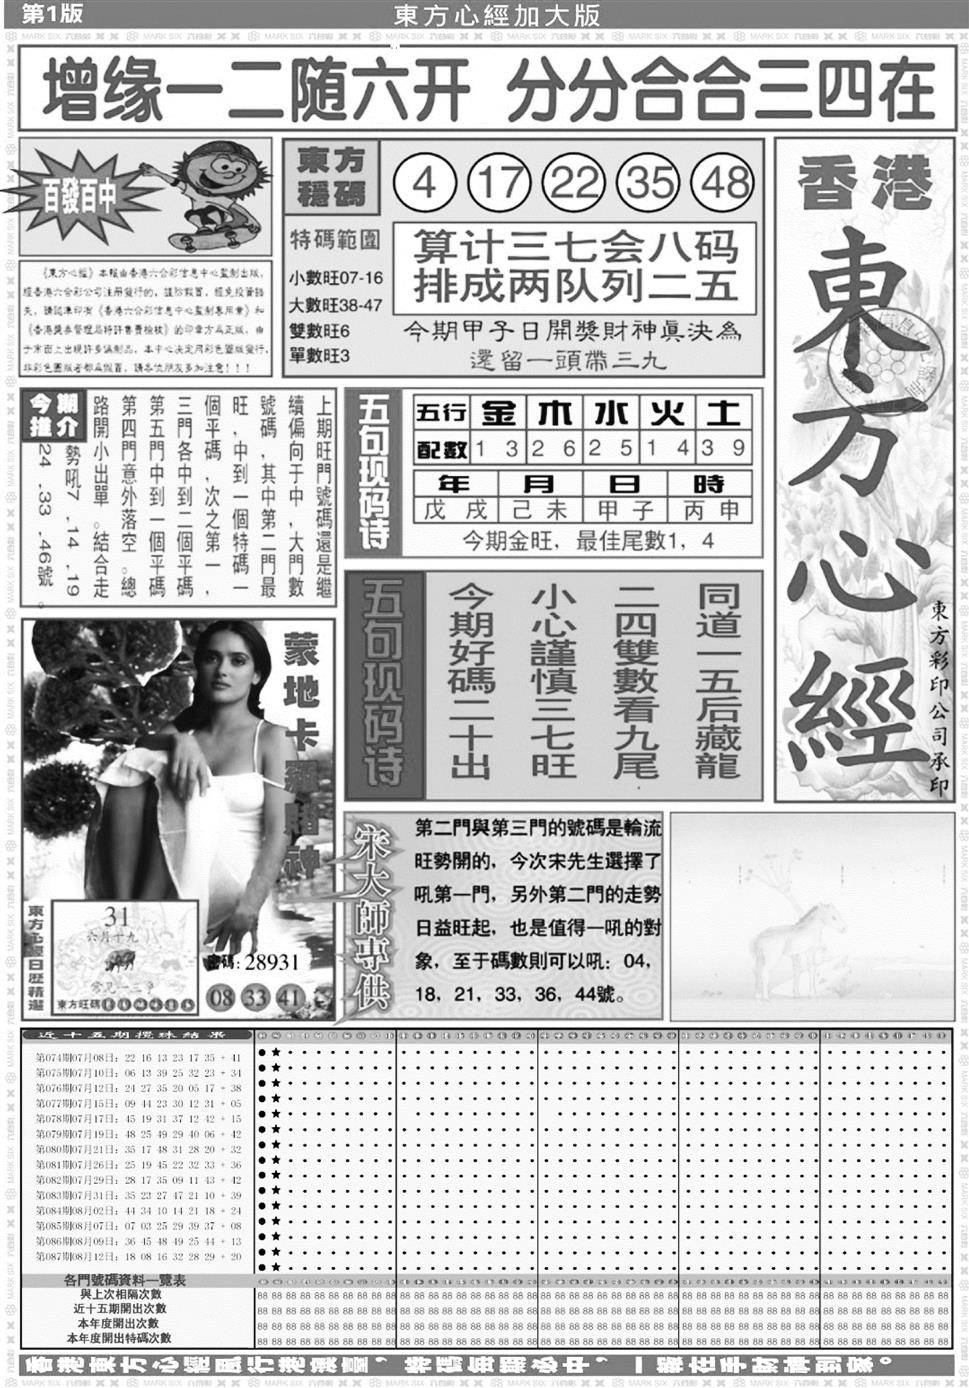 第1版
東方心經加大版
增缘一二随六开 分分合合三四在
百發百中
《東方心經》本報由香港六合彩信息中心監制出版，
經香港六合彩公司注册發行的，謹防假冒，避免投資損
失，請認準印有《香港六合彩信息中心監制專用章》和
《香港獎券管理局特許售賣檢核》的印章方爲正版，由
于市面上出現許多僞制品，本中心决定用彩色圖版發行，
非彩色圖版者都爲假冒，請各位朋友多加注意！！！
東方
穩碼
4 17 22 35 48
特碼範圍
小數旺07-16
大數旺38-47
雙數旺6
單數旺3
算计三七会八码
排成两队列二五
今期甲子日開獎財神真决為
還留一頭帶三九
香港
東方心經
東方彩印公司承印
今期
推介
上期旺門號碼還是繼
續偏向于中，大門數
號碼，其中第二門最
旺，中到一個特碼一
個平碼，次之第一，
三門各中到二個平碼
第五門中到一個平碼
第四門意外落空。總
路開小出單。結合走
勢吼7，14，19
24，33，46號。
五句现码诗
五行 金 木 水 火 土
配數 1 3 2 6 2 5 1 4 3 9
年 月 日 時
戊戌 己未 甲子 丙申
今期金旺，最佳尾數1，4
五句现码诗
同道一五后藏龍
二四雙數看九尾
小心謹慎三七旺
今期好碼二十出
蒙地卡羅賭神
東方心經日歷精選
31
六月十九
東方旺碼
密碼:28931
08 33 41
宋大師專供
第二門與第三門的號碼是輪流
旺勢開的，今次宋先生選擇了
吼第一門，另外第二門的走勢
日益旺起，也是值得一吼的對
象，至于碼數則可以吼：04，
18，21，33，36，44號。
近十五期攪珠結果
第074期07月08日：22 16 13 23 17 35 + 41
第075期07月10日：06 13 39 25 32 23 + 34
第076期07月12日：24 27 35 20 05 17 + 38
第077期07月15日：09 44 23 30 12 31 + 05
第078期07月17日：45 19 31 37 12 42 + 15
第079期07月19日：48 25 49 29 40 06 + 42
第080期07月21日：35 17 48 31 28 20 + 32
第081期07月26日：25 19 45 22 32 33 + 36
第082期07月29日：28 17 35 09 11 43 + 42
第083期07月31日：35 23 27 47 21 10 + 39
第084期08月02日：44 34 10 14 21 18 + 24
第085期08月07日：07 03 25 29 39 37 + 08
第086期08月09日：36 45 48 49 25 44 + 13
第087期08月12日：18 08 16 32 28 29 + 20
各門號碼資料一覽表
與上次相隔次數
近十五期開出次數
本年度開出次數
本年度開出特碼次數
香港東方心經風行港澳臺，特碼每期必中，一報在手財神到家。